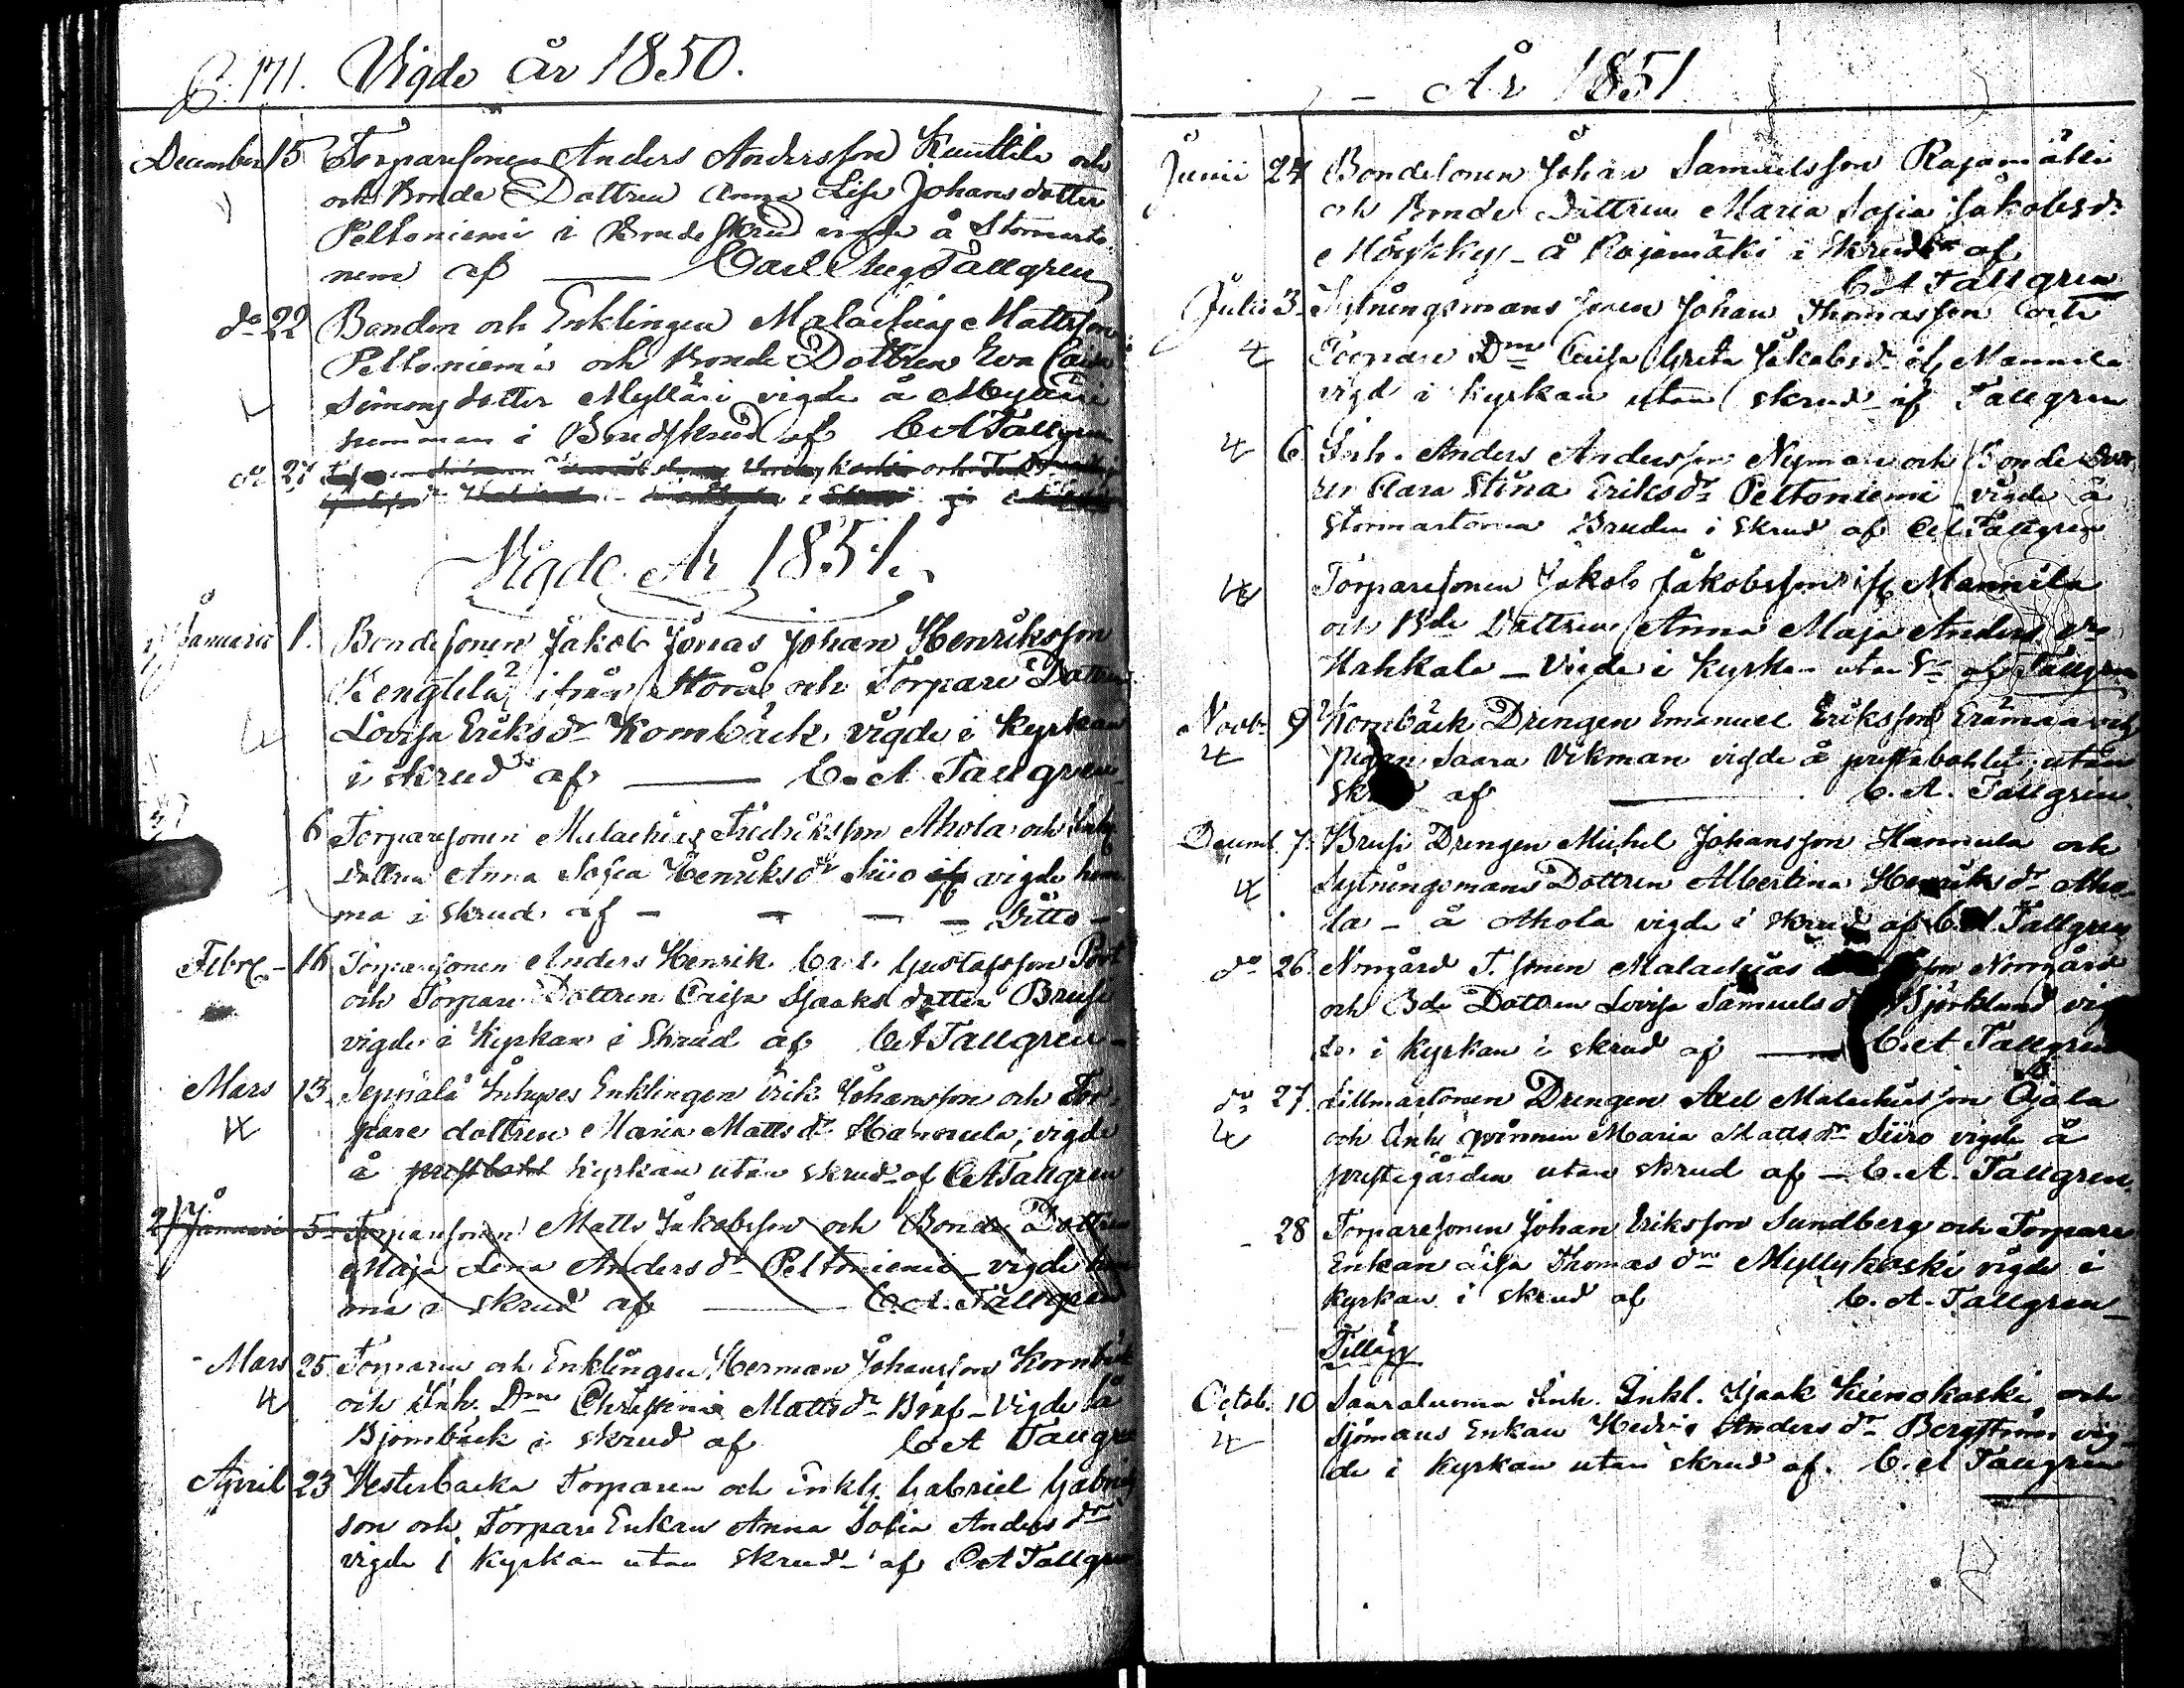 P. 171. Vigde år 1850.
December 15 Torparesonen Anders Andersson Kuuttila och
och Bonde Dottren Anna Lisa Johansdotter
Peltoniemi i Brudskrud å Stormarto-
nem af — Carl Aug Tallgren
do 22 Bonden och Enklingen Malachias Mattsson
Peltoniemi och Bonde Dottren Eva Caisa
Simonsdotter Mylläri vigde å Mylläri
hemman i Brudskrud af C A Tallgren
do 27
Vigde År 1851.
Januarii 1. Bondesonen Jakob Jonas Johan Henriksson
ifrån Storå, och Torpare Dottren
Lovisa Eriksdr Kornbäck vigde i Kyrkan
i skrud af — C. A Tallgren
6 Torparesonen Malachias Fredriksson Ahola och Inh.
Dottren Anna Sofia Henriksdr Siiro vigde hem
ma i skrud af — — — Ditto —
Febr. 16 Torparesonen Anders Henrik Carl Gustafsson Port
och Torpare Dottren Caisa Isaaks dotter Brusi
vigde i Kyrkan i Skrud af C A Tallgren
Mars 13 Seppälä Inhyses Enklingen Erik Johansson och Tor-
pare dottren Maria Mattsdr Hannula, vigde
å prestbohl kyrkan utan skrud af C A Tallgren
2/ Januari 5 Torparesonen Matts Jakobsson och Bonde Dottren
Maja Lena Andersdr Peltoniemi — vigde hem
ma i skrud af — C. A. Tallgren
Mars 25 Torparen och Enklingen Herman Johansson Kornbäck
och Inh. Dm Christina Mattsdr Bräf — Vigde på
Björnbäck i skrud af C A Tallgren
April 23 Vesterbacka Torparen och Enkl. Gabriel Gabriels
son och Torpare Enkan Anna Sofia Andersdr
vigde i kyrkan utan skrud af C A Tallgren
År 1851
Junii 24 Bondesonen Johan Samuelsson Rajamäki
och Bonde Dottren Maria Sofia Jakobsdr
Möykky — å Rajamäki i Skrud af
C A Tallgren
Julii 3 Sytningsmans sonen Johan Thomasson och
Torpare Dm Caisa Greta Jakobsdr Mannila
vigd i kyrkan utan skrud af Tallgren
6 Inh. Anders Andersson Nyman och Bonde dott
ren Clara Stina Eriksdr Peltoniemi vigde å
Stormartonen Bruden i skrud af C A Tallgren
Torparesonen Jakob Jakobsson Mannila
och Bde Dottren Anna Maja Anders dr
Hahkala — Vigde i kyrkan utan Sd af Tallgren
Novb. 9 Kornbäck Drengen Emanuel Eriksson och
Pigan Saara Vikman vigde å prestbohlet, utan
skrud af — C. A. Tallgren
Decemb. 7. Brusi Drengen Michel Johansson Hannula och
Sytningsmans Dottren Albertina Henriksdr Aho
la — å Ahola vigde i skrud af C. A Tallgren
do 26 Norrgård T. sonen Malachias son Norrgård
och Bde Dottren Lovisa Samuels dr Björklund vig
de i kyrkan i skrud af — C. A Tallgren
do 27. Lillmartonen Drengen Axel Malachiasson Ojala
och Inh qvinnan Maria Mattsdr Siiro vigde å
prestegården utan skrud af — C. A. Tallgren.
28 Torparesonen Johan Eriksson Sundberg och Torpare
Enkan Caisa Thomas dr Myllykoski vigde i
kyrkan i skrud af C. A. Tallgren
Tillägg
Octob. 10 Saaraluoma Inh. Enkl. Isaak Kienokoski och
Sjömans Enkan Hedvig Andersdr Bergström vig-
de i kyrkan utan skrud af. C. A Tallgren